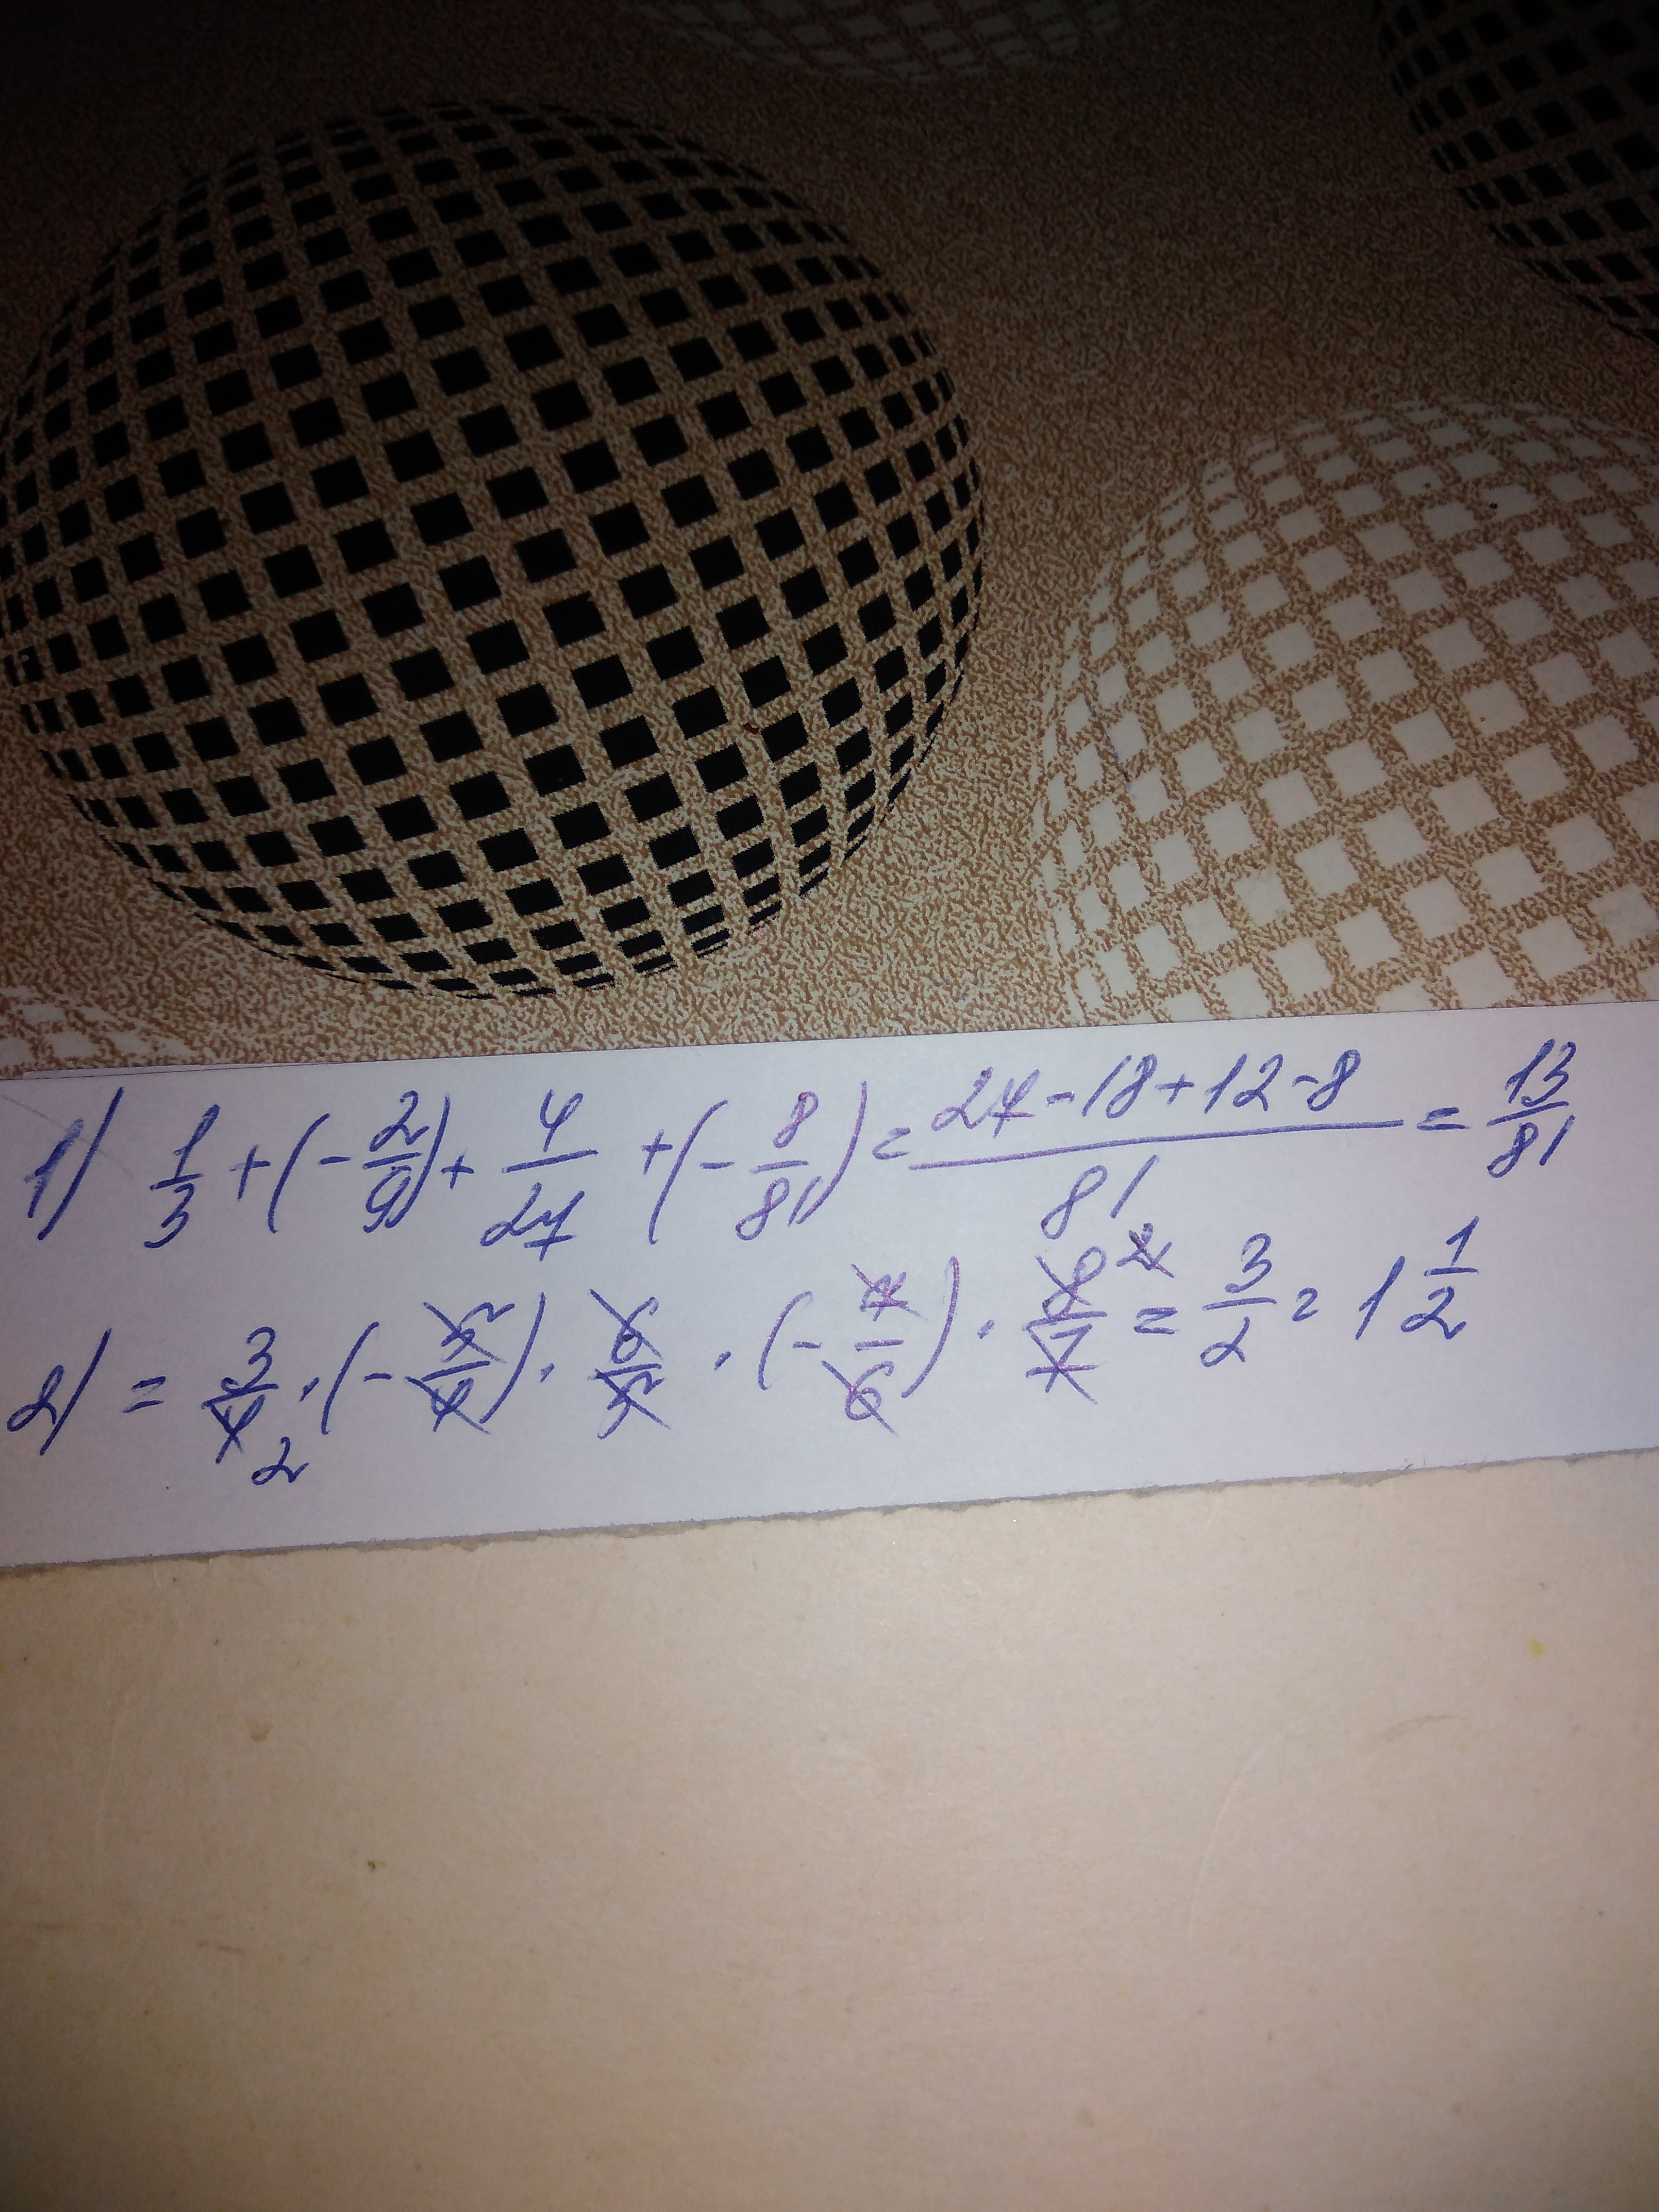 1) 1/3 + (- 2/9) + 4/27 + (- 8/81) = (24 - 18 + 12 - 8)/81 = 13/81
2) = 3/4 2 · (- 5/4) · 6/5 · (- 7/6) · 8/7 2 = 3/2 = 1 1/2